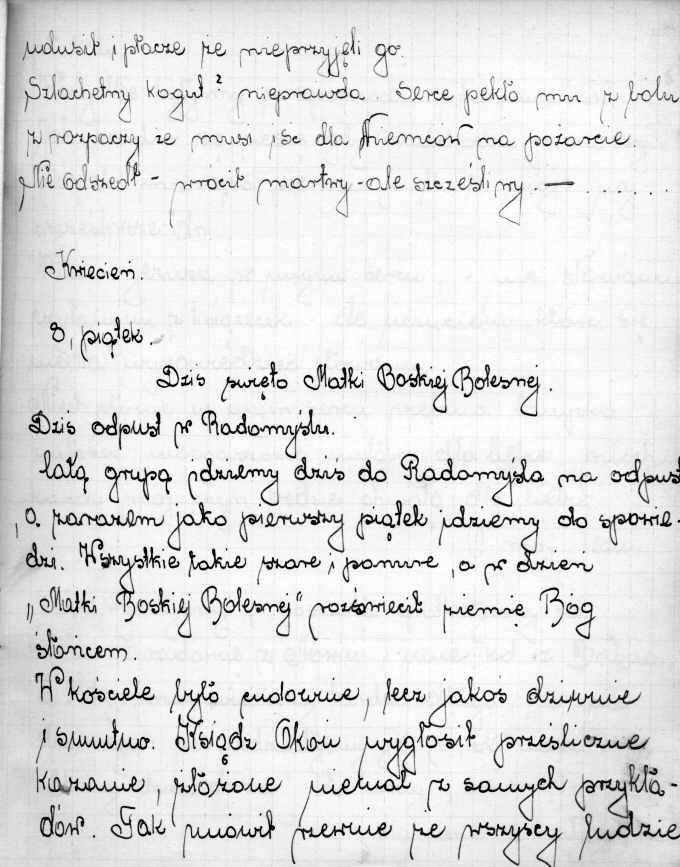 udusił i płacze że nieprzyjęli go.
Szlachetny kogut² nieprawda Serce pękło mu z bólu
z rozpaczy że musi iść dla Niemców na pożarcie
Nie odszedł - wrócił martwy - ale szczęśliwy. — . . . . . .
Kwiecień.
8, piątek.
Dziś święto Matki Boskiej Bolesnej.
Dziś odpust w Radomyślu.
Całą grupą idziemy dziś do Radomyśla na odpust
, a zarazem jako pierwszy piątek idziemy do spowie-
dzi. Wszystkie takie szare i ponure, a w dzień
„Matki Boskiej Bolesnej" rozświecił ziemię Bóg
słońcem.
W kościele było cudownie, lecz jakoś dziwnie
i smutno. Ksiądz Okoń wygłosił prześliczne
kazanie, złożone niemal z samych przykła-
dów. Tak mówił rzewnie że wszyscy ludzie